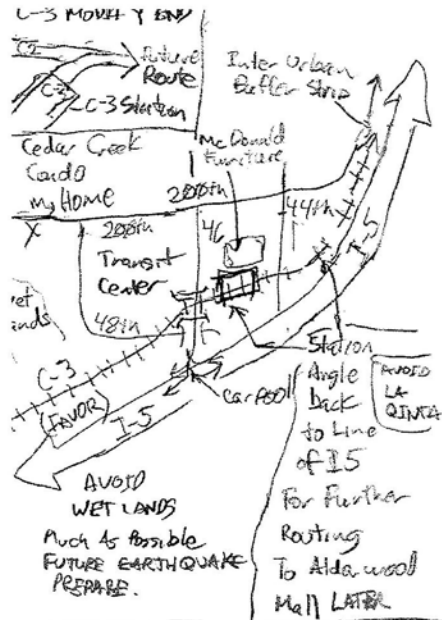 C-3 MODIFY END
C2
Future
Route
C-2
C-3 Station
Inter Urban
Buffer Strip
Cedar Creek
Condo
My HOME
X
McDonald
Furniture
200th
200th
46
44th
Transit
Center
48th
I-5
C-3
(FAVOR)
I-5
Station
Car Pool
AVOID
LA
QINTA
Angle
back
to Line
of I5
For Further
Routing
To Alderwood
Mall LATER
AVOID
WET LANDS
Much As Possible
FUTURE EARTHQUAKE
PREPARE.